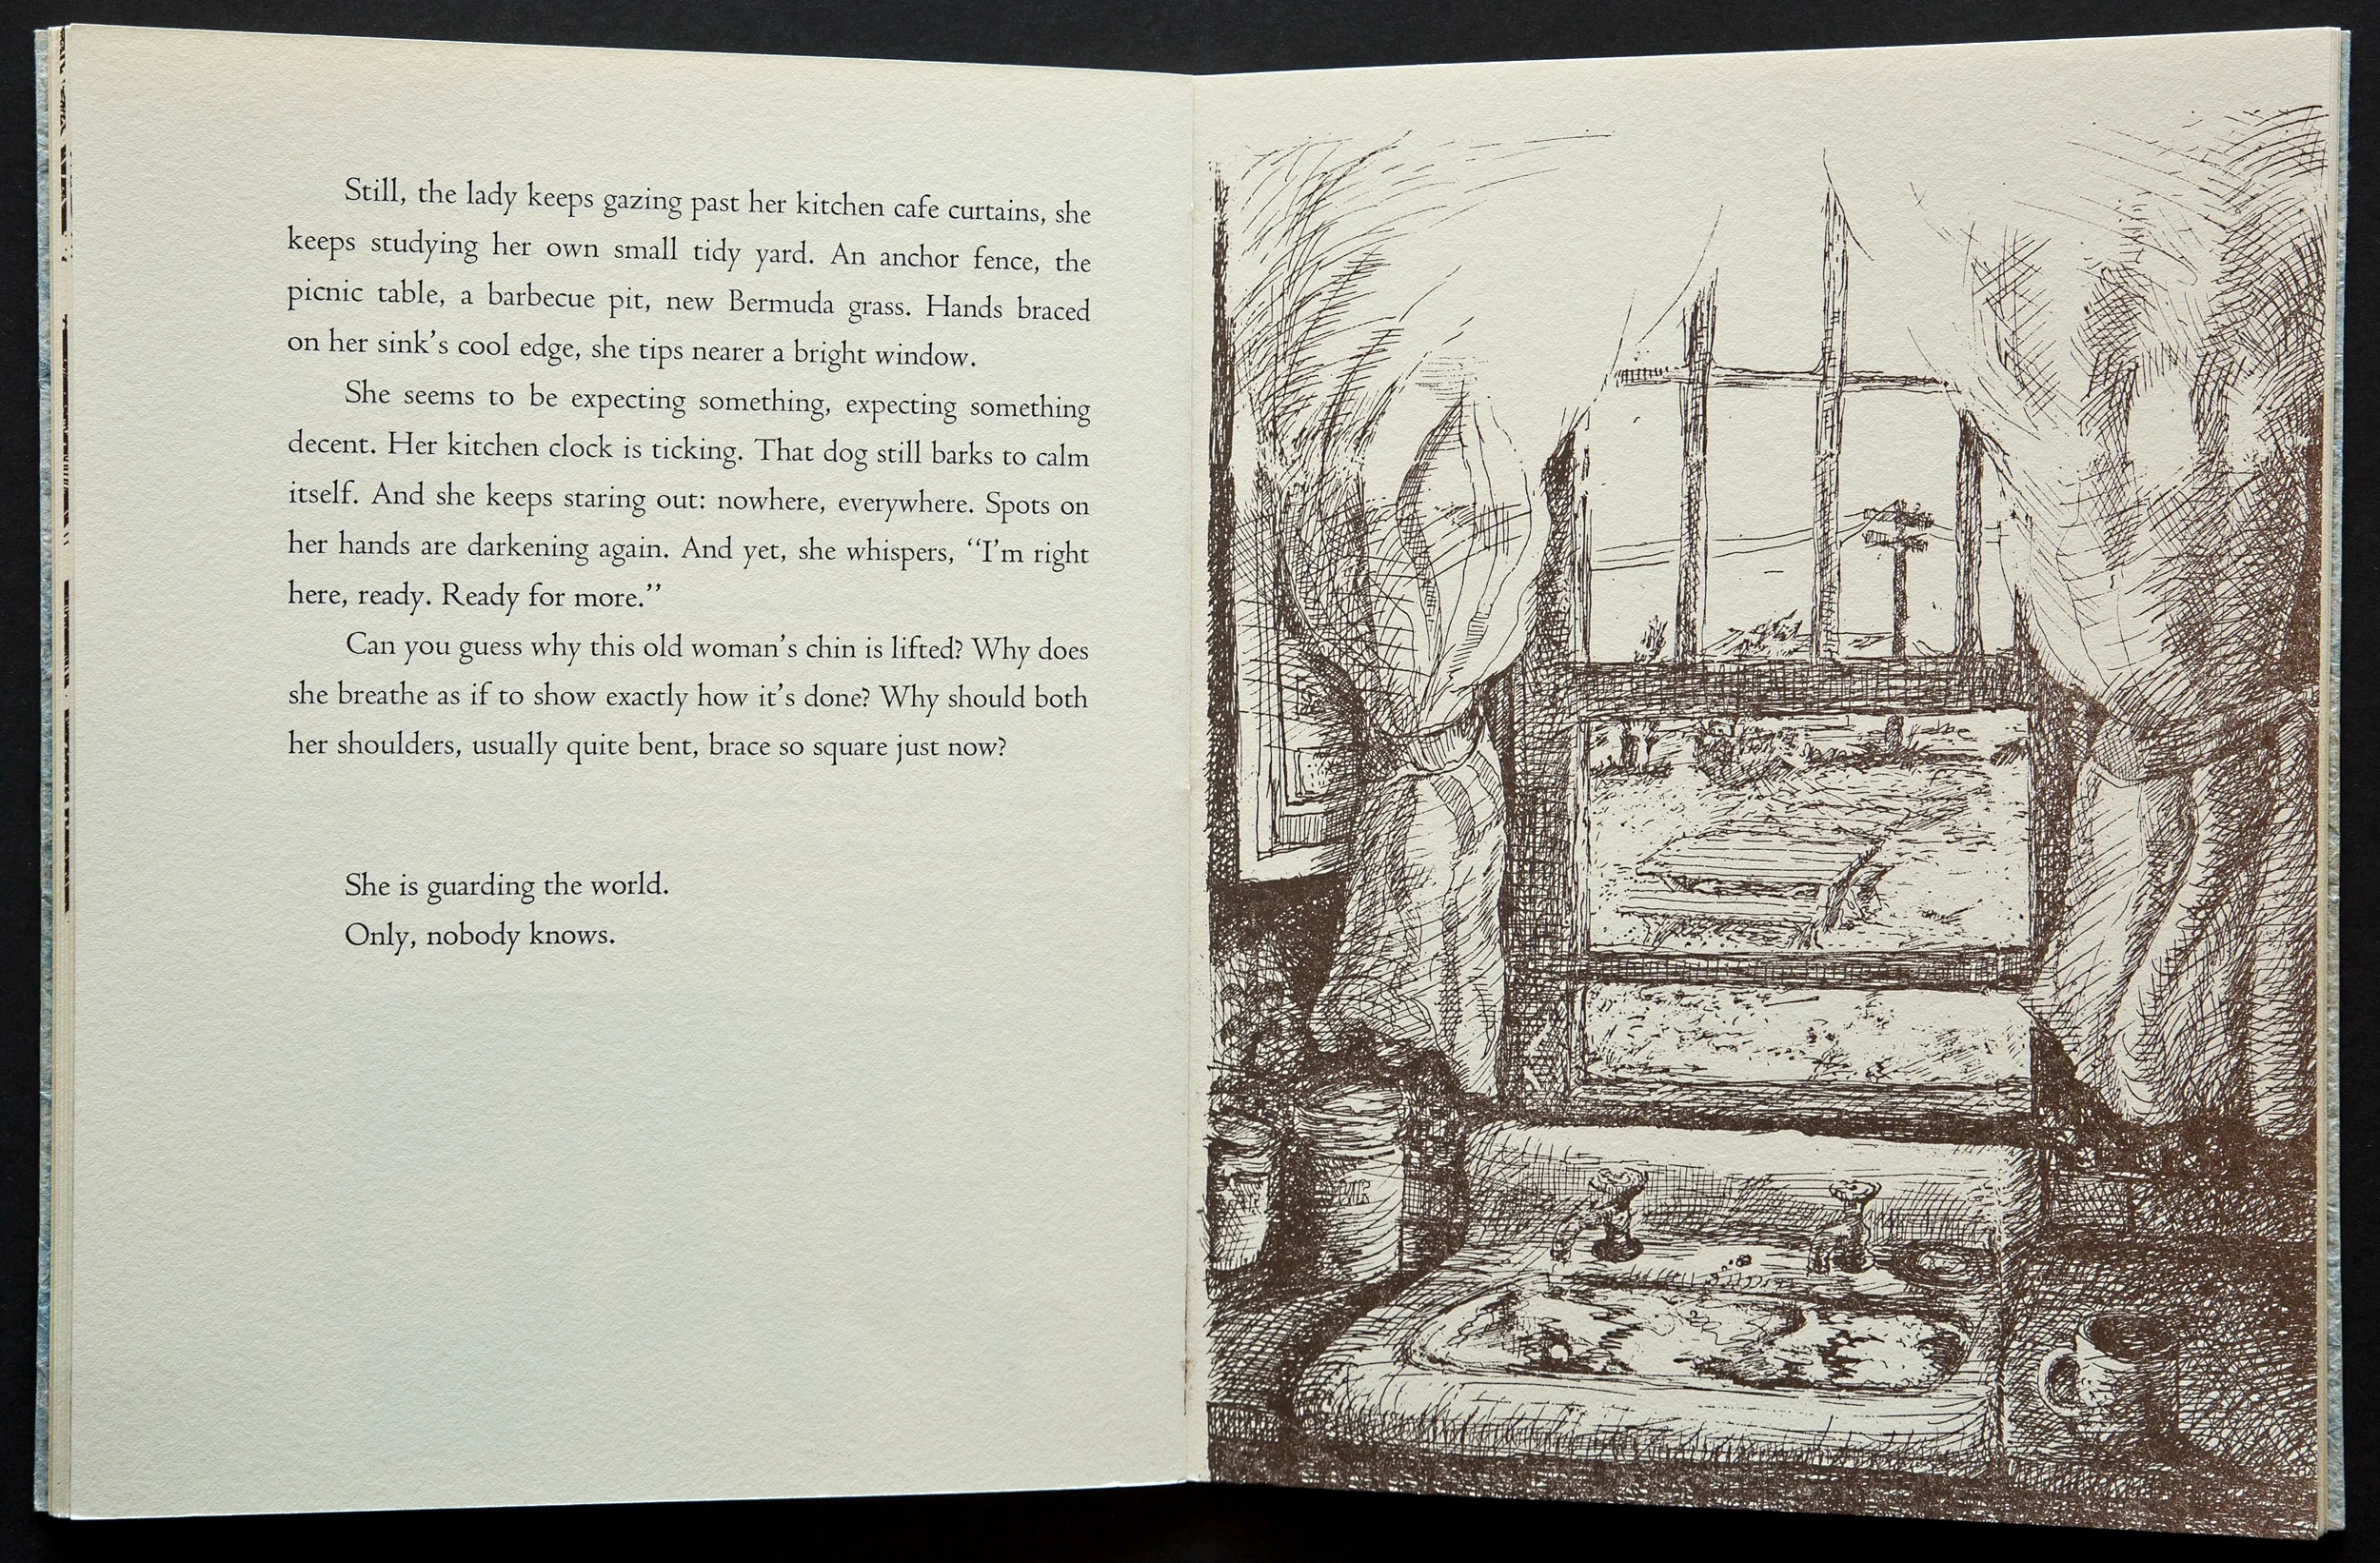 Still, the lady keeps gazing past her kitchen cafe curtains, she
keeps studying her own small tidy yard. An anchor fence, the
picnic table, a barbecue pit, new Bermuda grass. Hands braced
on her sink's cool edge, she tips nearer a bright window.
She seems to be expecting something, expecting something
decent. Her kitchen clock is ticking. That dog still barks to calm
itself. And she keeps staring out: nowhere, everywhere. Spots on
her hands are darkening again. And yet, she whispers, “I'm right
here, ready. Ready for more.”
Can you guess why this old woman's chin is lifted? Why does
she breathe as if to show exactly how it's done? Why should both
her shoulders, usually quite bent, brace so square just now?
She is guarding the world.
Only, nobody knows.